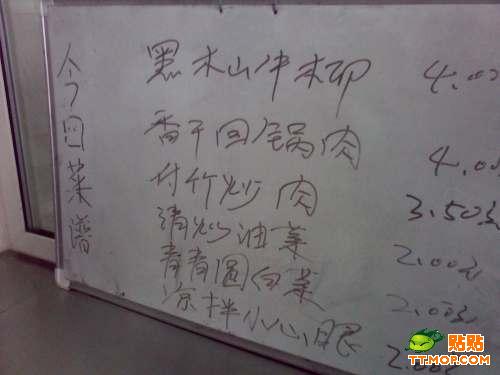 今日菜谱
黑木山牛柳 4.00元
香干回锅肉 4.00元
付竹炒肉 3.50元
清炒油菜 2.00元
青青圆白菜 2.00元
凉拌小心眼 2.00元
贴贴
TT.MOP.COM